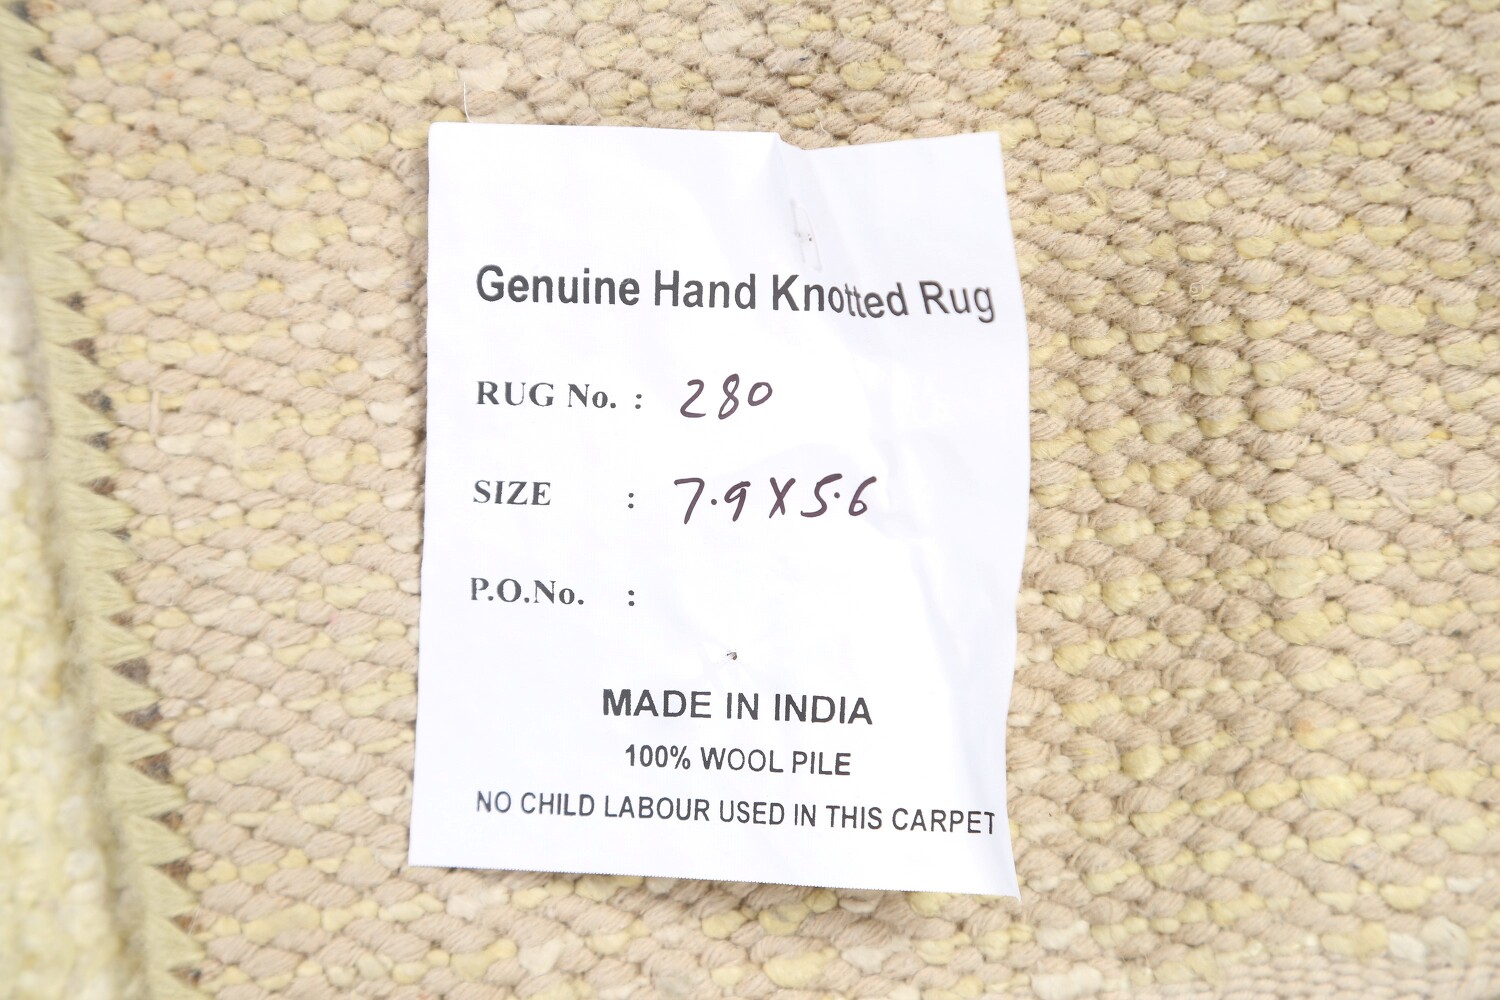 Genuine Hand Knotted Rug
RUG No. : 280
SIZE : 7.9 X 5.6
P.O.No. :
MADE IN INDIA
100% WOOL PILE
NO CHILD LABOUR USED IN THIS CARPET